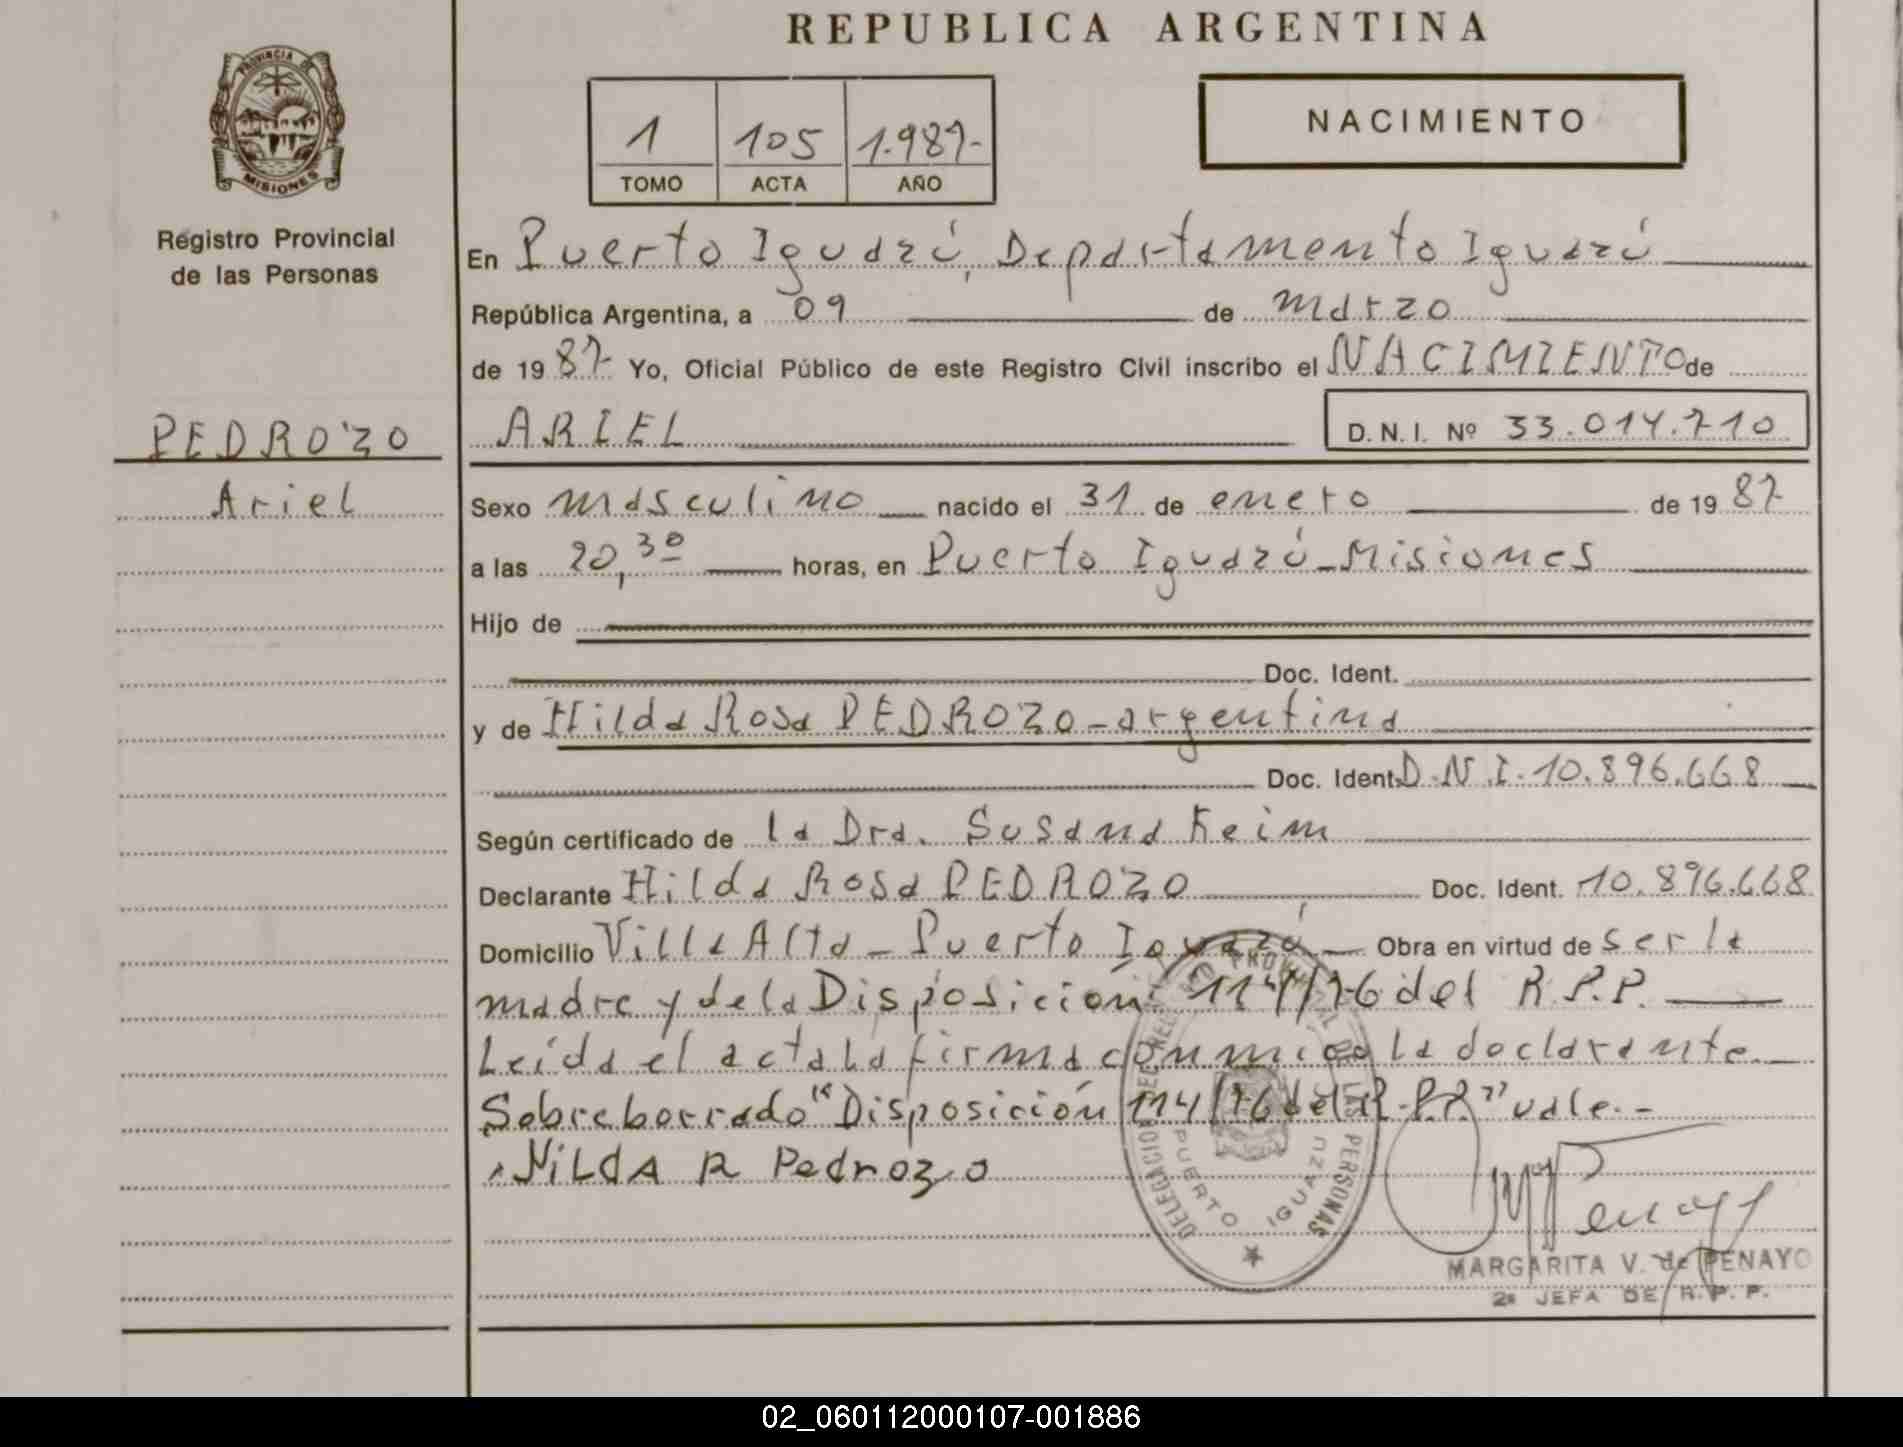 REPUBLICA ARGENTINA
PROVINCIA DE
MISIONES
Registro Provincial
de las Personas
1 105 1.987.-
TOMO ACTA AÑO
NACIMIENTO
En Puerto Iguazú, Departamento Iguazú
República Argentina, a 09 de marzo
de 1987 Yo, Oficial Público de este Registro Civil inscribo el NACIMIENTO de
PEDROZO
ARIEL D. N. I. Nº 33.014.710
Ariel
Sexo masculino nacido el 31 de enero de 1987
a las 20,30 horas, en Puerto Iguazú-Misiones
Hijo de
Doc. Ident.
y de Hilda Rosa PEDROZO-argentina
Doc. Ident. D.N.I. 10.896.668
Según certificado de la Dra. Susana Keim
Declarante Hilda Rosa PEDROZO Doc. Ident. 10.896.668
Domicilio Villa Alta - Puerto Iguazú Obra en virtud de ser la
madre y de la Disposición 114/76 del R.P.P.
Leída el acta la firma conmigo la declarante
Sobreborrado "Disposición 114/76 del R.P.P." vale.-
HILdA R Pedrozo
DELEGACION DEL REGISTRO PROVINCIAL DE LAS PERSONAS
PUERTO IGUAZU
MARGARITA V. de PENAYO
2a JEFA DE R. P. P.
02_060112000107-001886